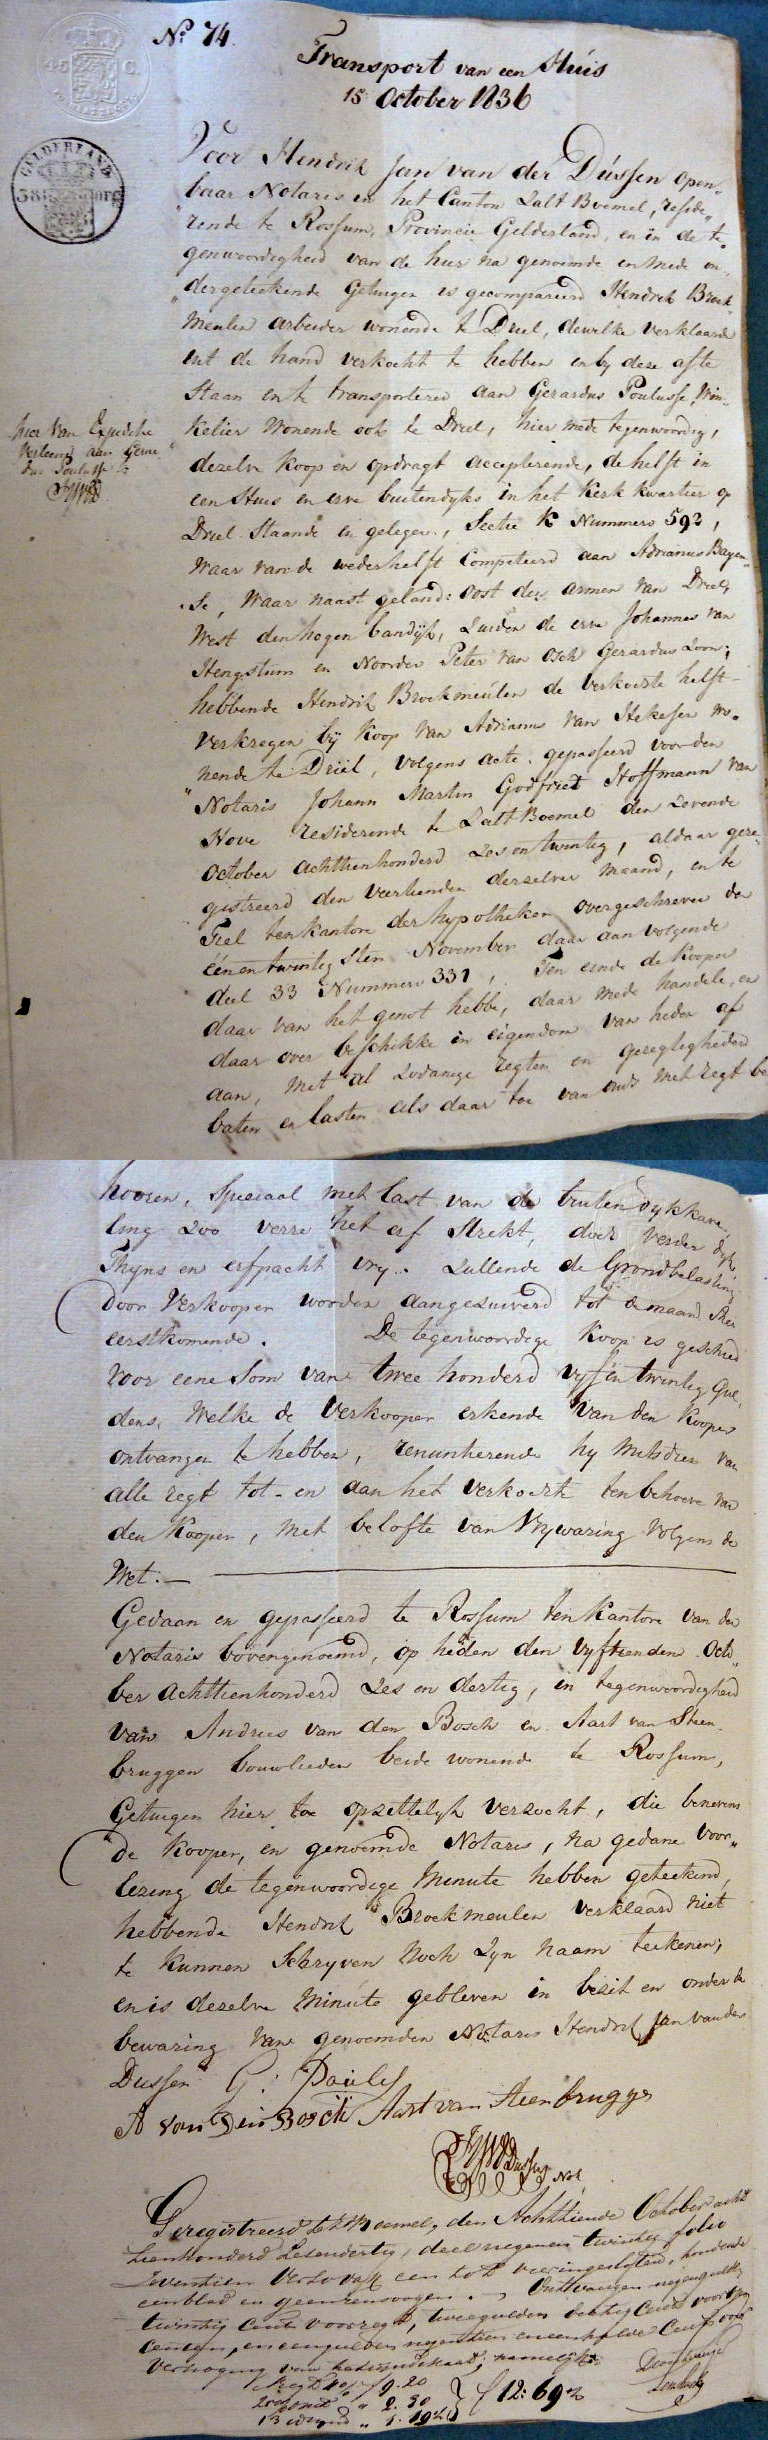 No 74
Transport van een Huis
15 October 1836
GELDERLAND
Voor Hendrik Jan van der Dussen open-
baar Notaris in het Canton Zalt Boemel, reside-
rende te Rossum, Provincie Gelderland, en in de te-
genwoordigheid van de hier na genoemde en mede on-
dergeteekende Getuigen is gecompareerd Hendrik Broek
meulen arbeider wonende te Driel, dewelke verklaarde
uit de hand verkocht te hebben en by deze afte
staan en te transporteren aan Gerardus Poulusse, Win-
kelier wonende ook te Driel, hier mede tegenwoordig,
dezelve koop en opdragt accepterende, de helft in
een Huis en erve buitendyks in het Kerk kwartier op
Driel staande en gelegen, Sectie K Nummero 592,
waar van de wederhelft Competeerd aan Adrianus Bayen-
se, waar naast geland: oost den armen van Driel,
West den hogen bandijk, Zuiden de erve Johannes van
Hengstum en Noorden Peter van Osch Gerardus Zoon;
hebbende Hendrik Broekmeulen de verkochte helft
verkregen bij koop van Adrianus van Hekesen wo-
nende te Driel, volgens acte gepasseerd voor den
Notaris Johann Martin Godfried Hoffmann van
Hove residerende te Zalt Boemel den Zevende
October achttienhonderd Zes en twintig, aldaar gere-
gistreerd den Veertienden derzelver maand, en te
Tiel ten kantore der hypotheken overgeschreven den
een en twintigsten November daar aan volgende
deel 33 Nummero 331, Ten einde de Kooper
daar van het genot hebbe, daar mede handele, en
daar over beschikke in eigendom van heden af
aan, met al zodanige regten en geregtigheden
baten en lasten als daar toe van ouds met regt be
hier van Expeditie
verleend aan Gerar-
dus Poulusse
hooren, Speciaal met last van de buitendykkave-
ling zoo verre het erf strekt, doch verder dyk
Thyns en erfpacht vry. Zullende de Grondbelasting
door Verkooper worden aangezuiverd tot de maand
eerstkomende. De tegenwoordige koop is geschied
voor eene Som van twee honderd vyf en twintig Gul-
dens, Welke de Verkooper erkende van den Kooper
ontvangen te hebben, renuntierende hy mitsdien van
alle regt tot en aan het verkochte ten behoeve van
den Kooper, met belofte van Vrywaring volgens de
Wet.
Gedaan en gepasseerd te Rossum ten Kantore van den
Notaris bovengenoemd, op heden den Vyftienden Octo-
ber achttienhonderd Zes en dertig, in tegenwoordigheid
van Andries van den Bosch en Aart van Steen-
bruggen bouwlieden beide wonende te Rossum,
Getuigen hier toe opzettelyk verzocht, die benevens
de Kooper, en genoemde Notaris, na gedane voor-
lezing de tegenwoordige Minute hebben geteekend,
hebbende Hendrik Broekmeulen verklaard niet
te kunnen Schryven noch zyn naam teekenen;
en is dezelve Minute gebleven in bezit en onder de
bewaring van genoemden Notaris Hendrik Jan van der
Dussen G: Paulus
A van den Bosch Aart van Steenbrugge
HJVDDussen Not
Geregistreerd te Z Boemel, den Achttiende October acht
tienhonderd Zesendertig, deel negenen twintig folio
zeventien Verso vak een tot
een blad en geen renvoijen. Ontvangen negen gulden
twintig Cents voor regt, twee gulden tachtig Cents voor
centen, en een gulden negentien en een halve Cent voor
verhooging van
9.20
f 12:69½